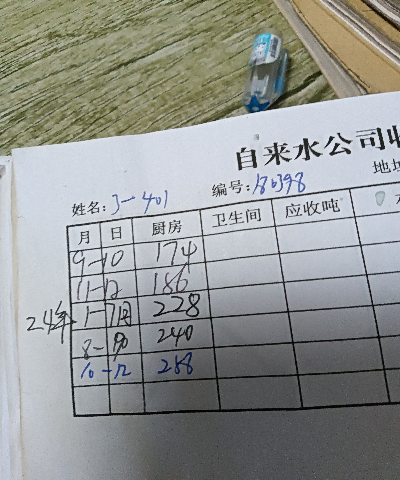 自来水公司收
姓名: 3-401 编号: 180398 地址
月 日 厨房 卫生间 应收吨
9-10 174
11-12 186
24年 1-7月 228
8-90 240
10-12 288